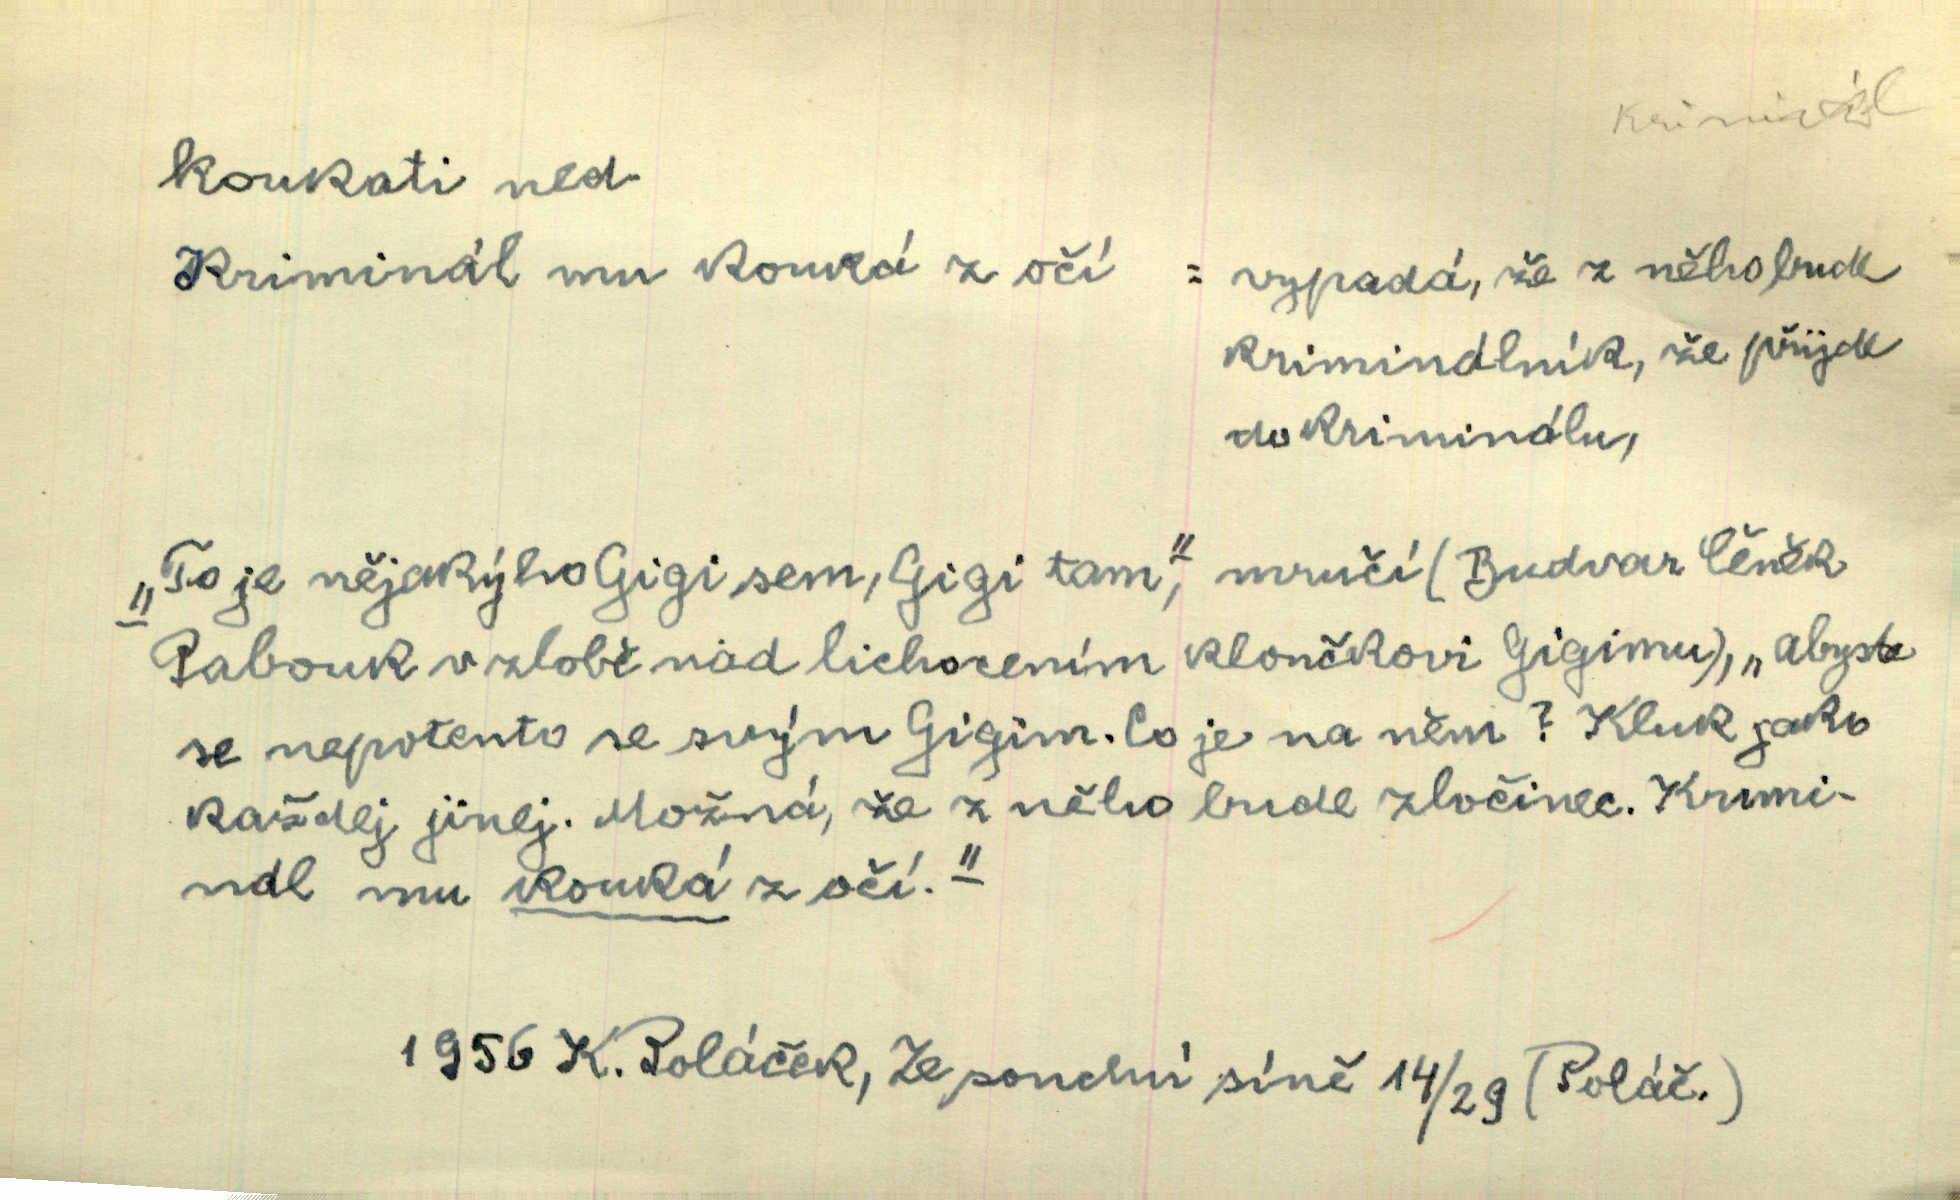 kriminál
koukati ned.
Kriminál mu kouká z očí = vypadá, že z něho bude
kriminálník, že přijde
do kriminálu,
"„To je nějakýho Gigi sem, Gigi tam“, mručí (Budvar Čeněk
Pabouk v zlobě nad lichocením kloučkovi Gigimu), „abyste
se nepotento se svým Gigim. Co je na něm? Kluk jako
každej jinej. Možná, že z něho bude zločinec. Krimi-
nál mu kouká z očí."
1956 K. Poláček, Ze soudní síně 14/29 (Poláč.)